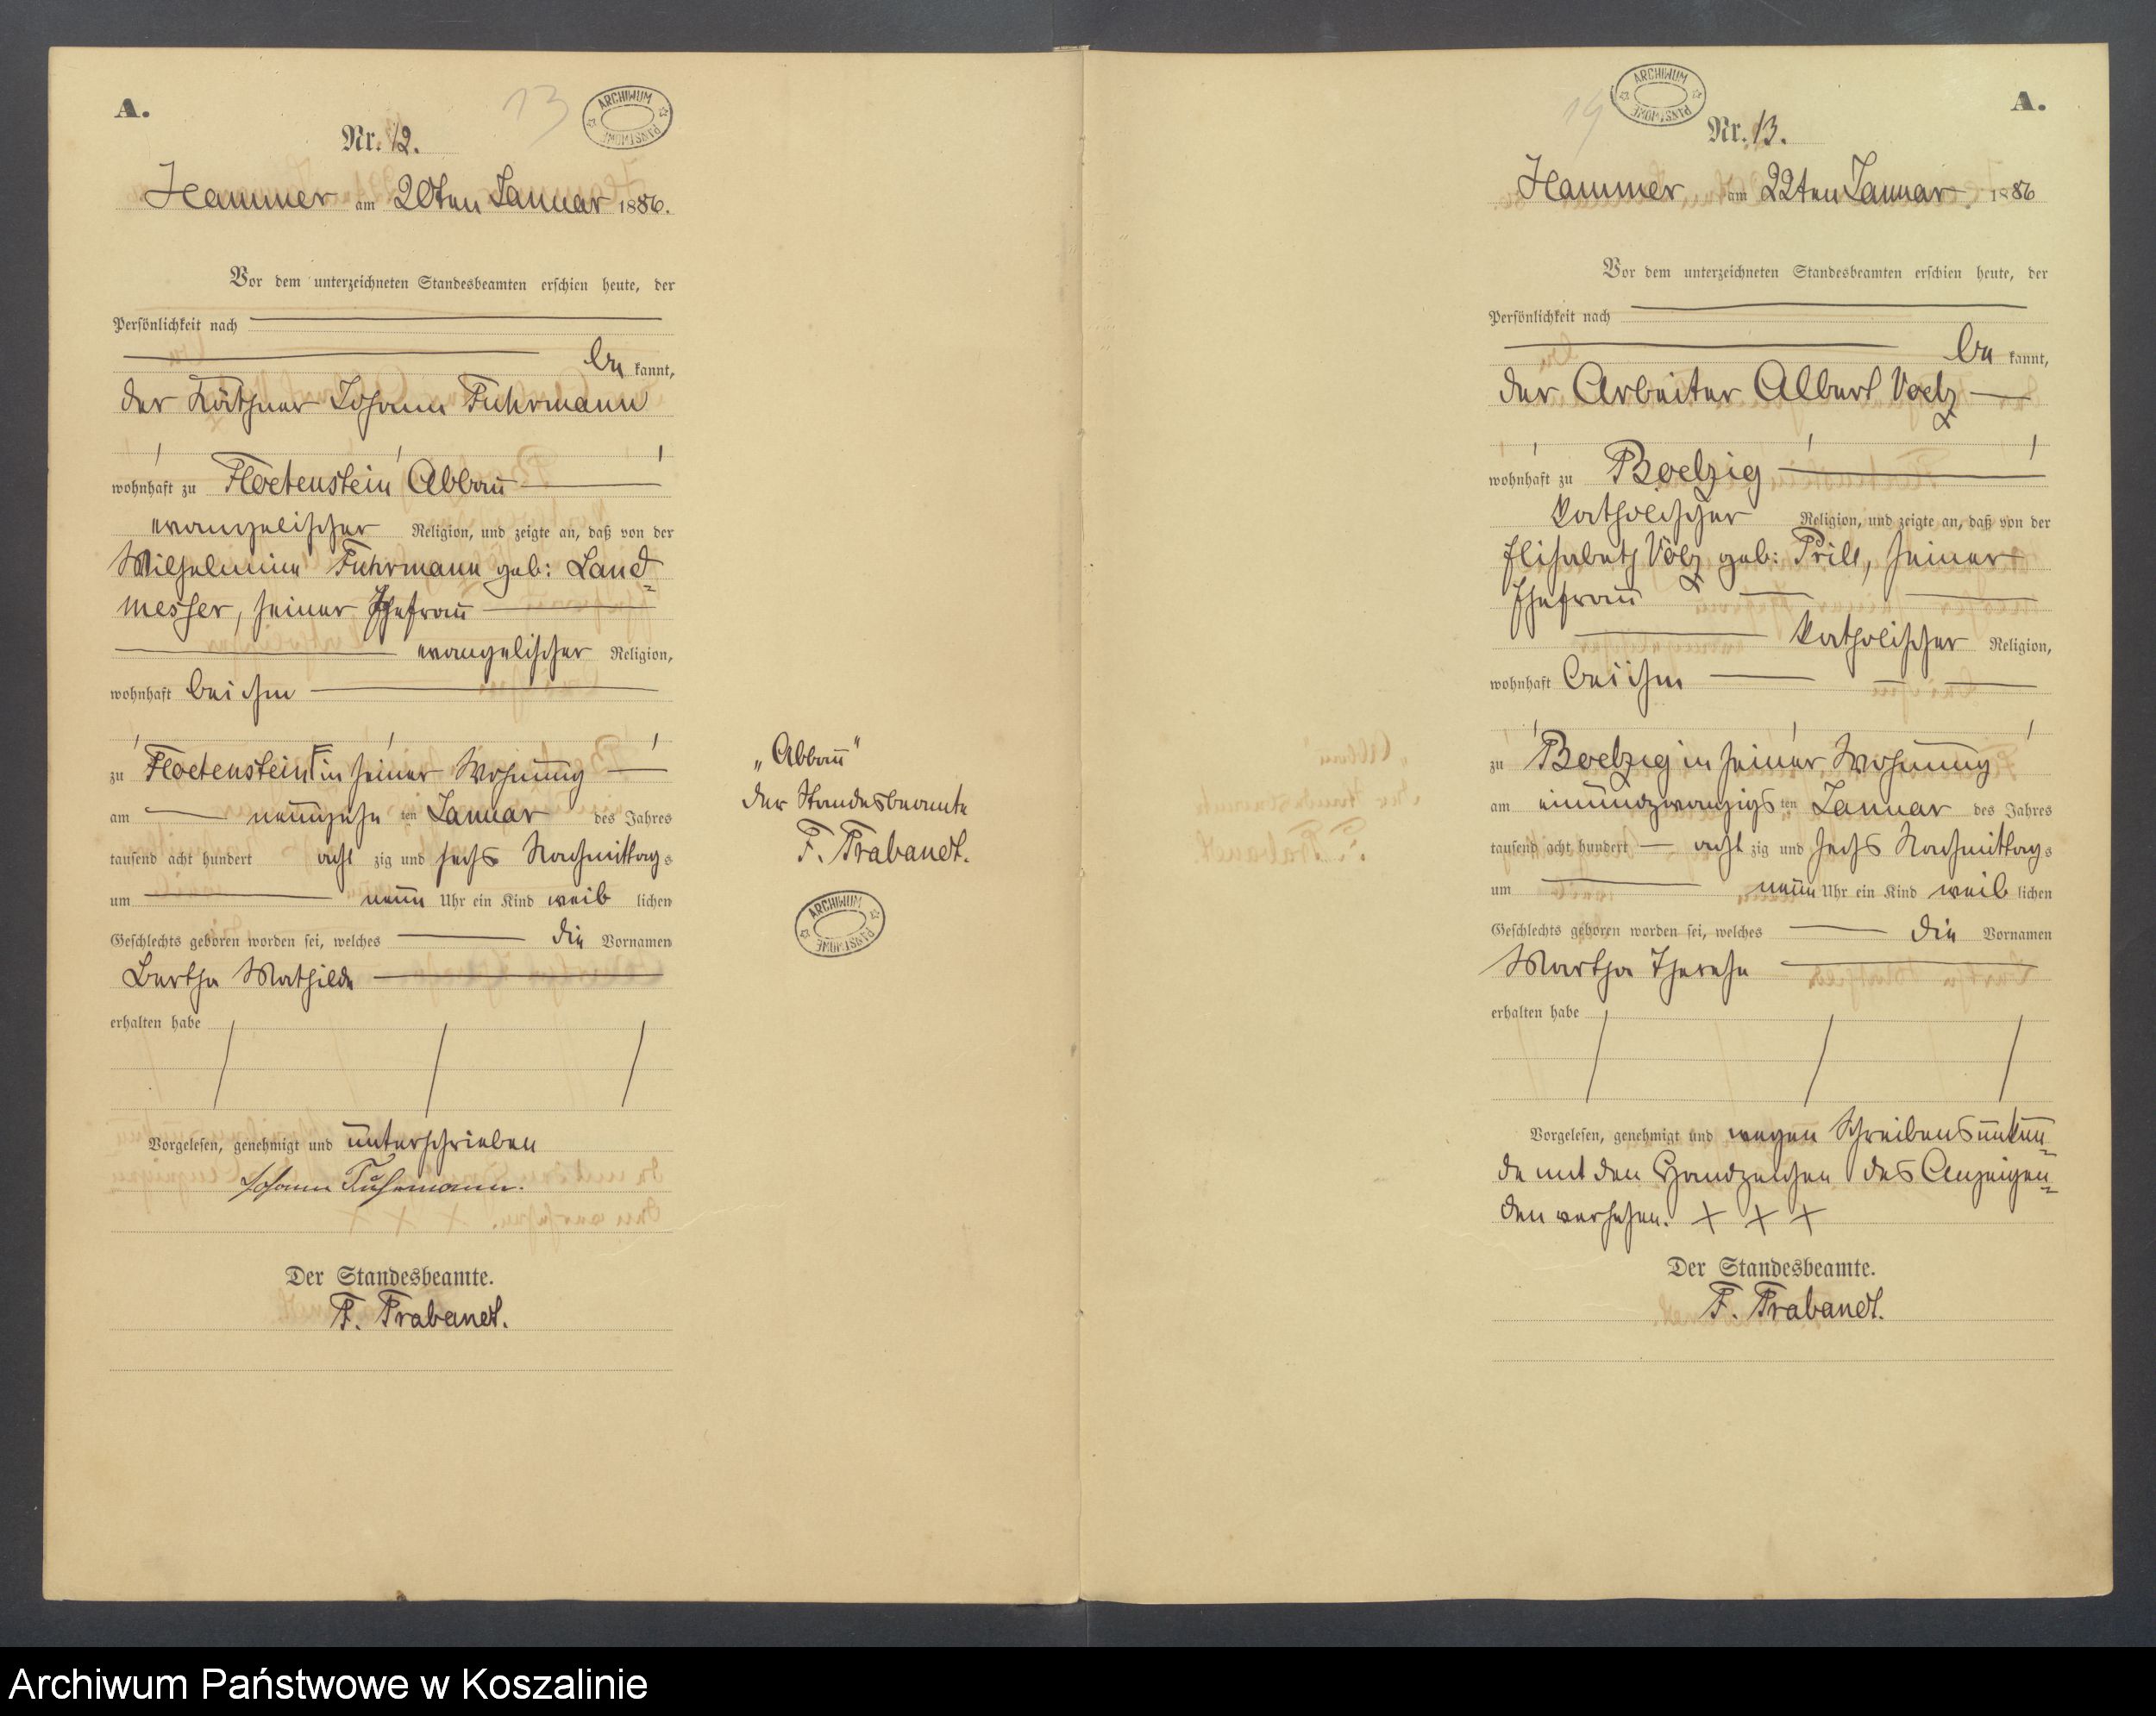 A.
13
ARCHIWUM PAŃSTWOWE
Nr. 12.
Hammer am 20ten Januar 1886.
Vor dem unterzeichneten Standesbeamten erschien heute, der
Persönlichkeit nach
be kannt,
der Käthner Johann Fuhrmann
wohnhaft zu Floetenstein Abbau
evangelischer Religion, und zeigte an, daß von der
Wilhelmine Fuhrmann geb: Land=
messer, seiner Ehefrau
evangelischer Religion,
wohnhaft bei ihm
zu Floetenstein Γ in seiner Wohnung
am neunzehn ten Januar des Jahres
tausend acht hundert acht zig und sechs Nachmittags
um neun Uhr ein Kind weib lichen
Geschlechts geboren worden sei, welches die Vornamen
Bertha Mathilde
erhalten habe
Vorgelesen, genehmigt und unterschrieben
Johann Fuhrmann.
Der Standesbeamte.
F. Trabandt.
„Abbau“
der Standesbeamte
F. Trabandt.
ARCHIWUM PAŃSTWOWE
A.
14
ARCHIWUM PAŃSTWOWE
Nr. 13.
Hammer, am 22ten Januar 1886
Vor dem unterzeichneten Standesbeamten erschien heute, der
Persönlichkeit nach
be kannt,
der Arbeiter Albert Voelz
wohnhaft zu Boelzig
katholischer Religion, und zeigte an, daß von der
Elisabeth Völz geb: Prill, seiner
Ehefrau
katholischer Religion,
wohnhaft bei ihm
zu Boelzig in seiner Wohnung
am einundzwanzigs ten Januar des Jahres
tausend acht hundert acht zig und sechs Nachmittags
um neun Uhr ein Kind weib lichen
Geschlechts geboren worden sei, welches die Vornamen
Martha Therese
erhalten habe
Vorgelesen, genehmigt und wegen Schreibensunkun=
de mit den Handzeichen des Anzeigen=
den versehen. + + +
Der Standesbeamte.
F. Trabandt.
Archiwum Państwowe w Koszalinie